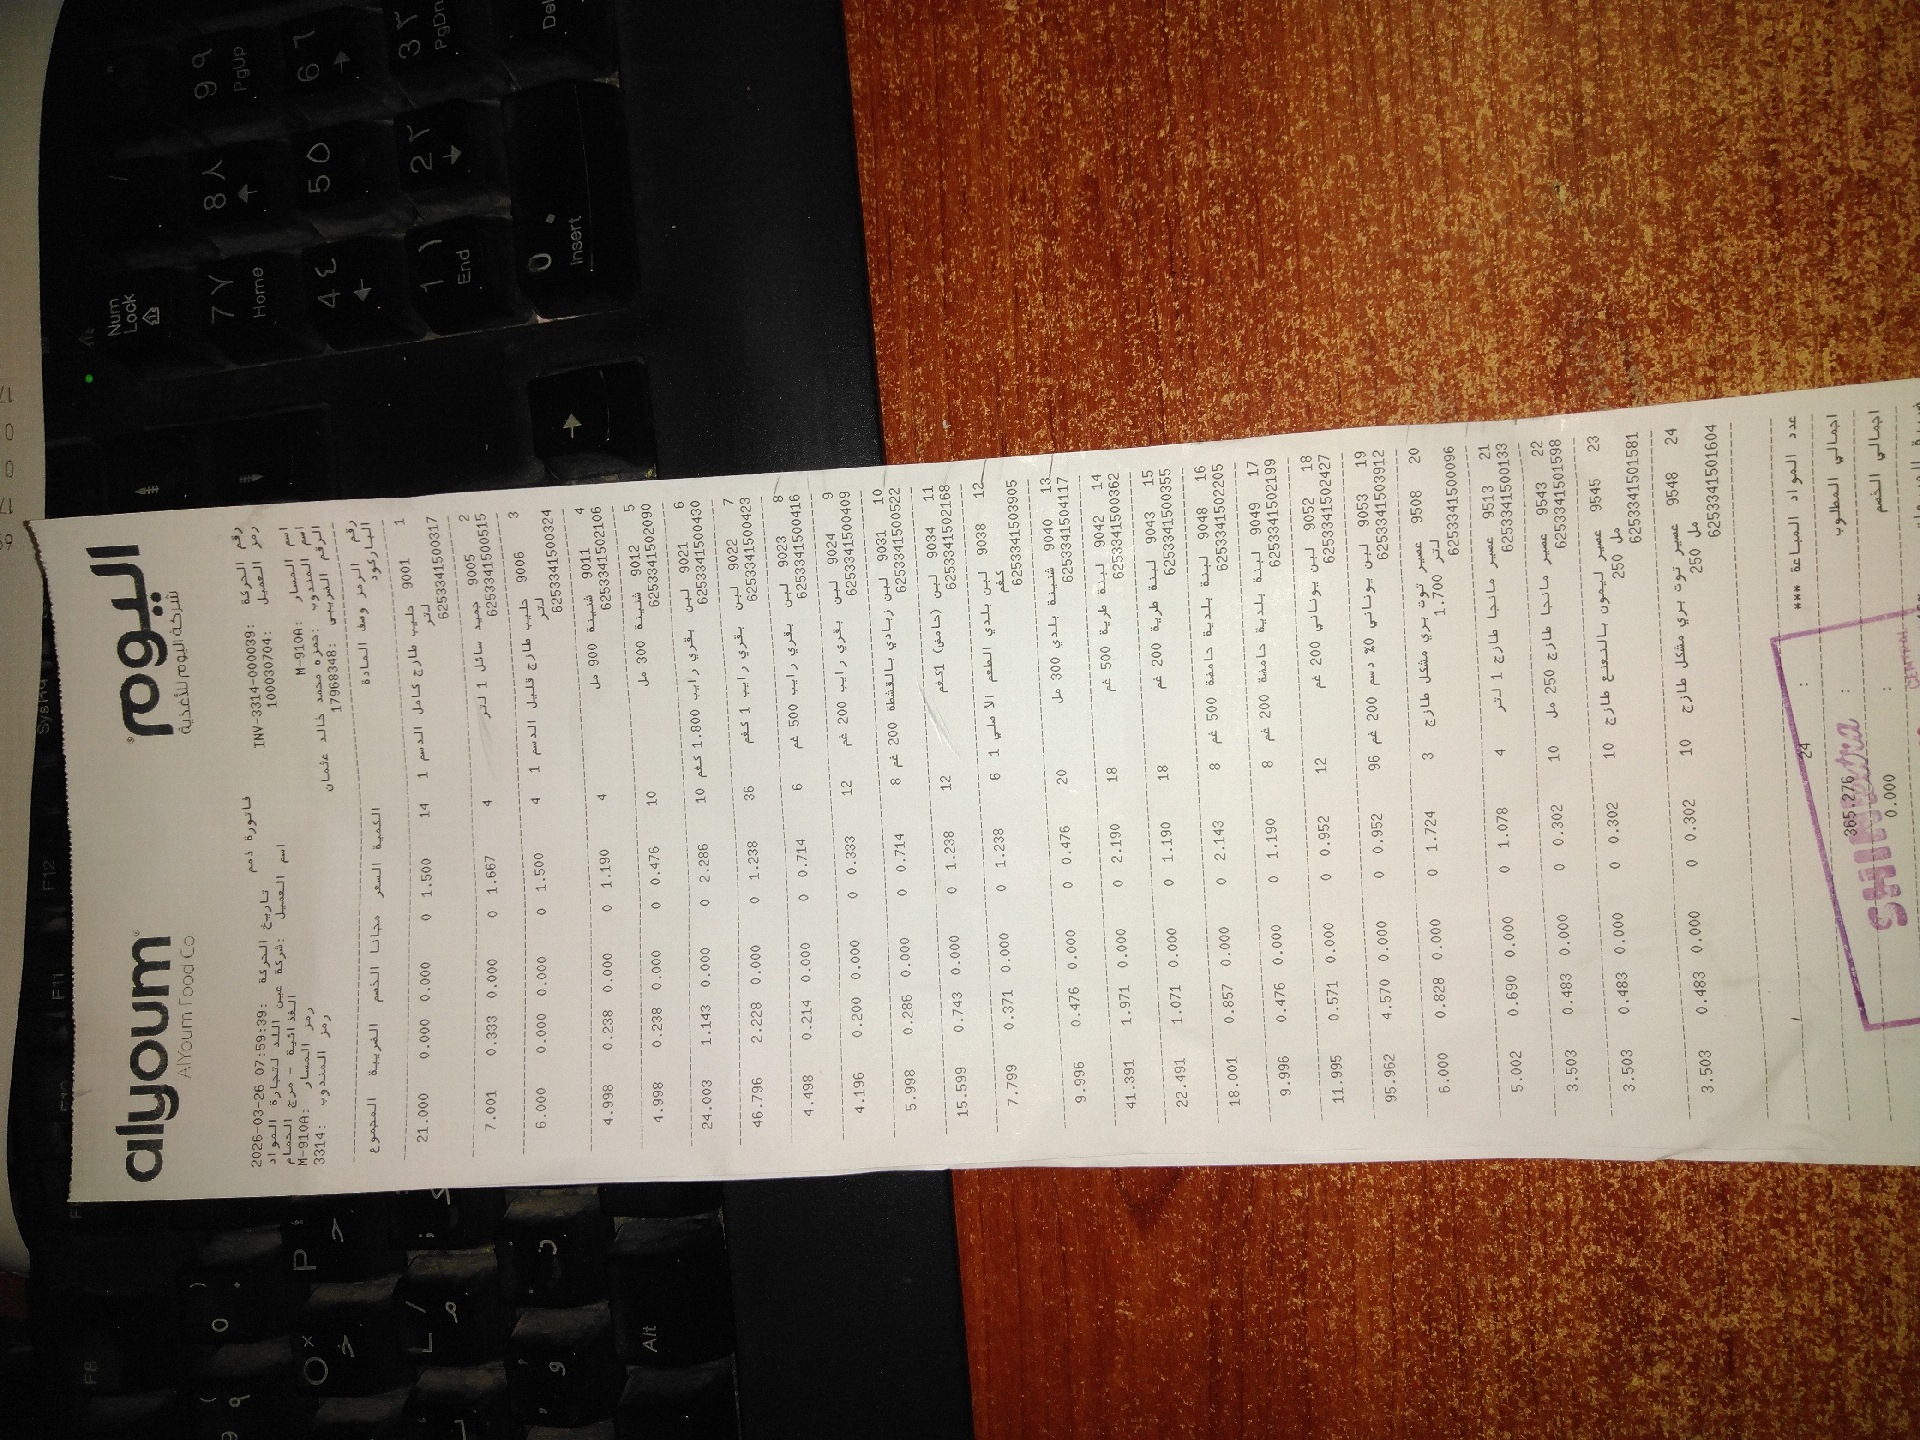 alyoum
AlYoum Food Co
اليوم
شركة اليوم للأغذية
رقم الحركة :INV-3314-000039 فاتورة ذمم تاريخ الحركة :2026-03-26 07:59:39
رمز العميل :100030704 اسم العميل :شركة عين اللد لتجارة المواد
الغذائية - مرج الحمام
اسم المسار :M-910A رمز المسار :M-910A
اسم المندوب :حمزه محمد خالد عثمان رمز المندوب :3314
الرقم الضريبي :17968348
رقم الرمز وصف المادة الكمية السعر مجانا الخصم الضريبة المجموع
الباركود
1 9001 حليب طازج كامل الدسم 1 14 1.500 0 0.000 0.000 21.000
لتر
6253341500317
2 9005 جميد سائل 1 لتر 4 1.667 0 0.000 0.333 7.001
6253341500515
3 9006 حليب طازج قليل الدسم 1 4 1.500 0 0.000 0.000 6.000
لتر
6253341500324
4 9011 شنينة 900 مل 4 1.190 0 0.000 0.238 4.998
6253341502106
5 9012 شنينة 300 مل 10 0.476 0 0.000 0.238 4.998
6253341502090
6 9021 لبن بقري رايب 1.800 كغم 10 2.286 0 0.000 1.143 24.003
6253341500430
7 9022 لبن بقري رايب 1 كغم 36 1.238 0 0.000 2.228 46.796
6253341500423
8 9023 لبن بقري رايب 500 غم 6 0.714 0 0.000 0.214 4.498
6253341500416
9 9024 لبن بقري رايب 200 غم 12 0.333 0 0.000 0.200 4.196
6253341500409
10 9031 لبن زبادي بالقشطة 200 غم 8 0.714 0 0.000 0.286 5.998
6253341500522
11 9034 لبن (حامض) 1كغم 12 1.238 0 0.000 0.743 15.599
6253341502168
12 9038 لبن بلدي الطعم الاصلي 1 6 1.238 0 0.000 0.371 7.799
كغم
6253341503905
13 9040 شنينة بلدي 300 مل 20 0.476 0 0.000 0.476 9.996
6253341504117
14 9042 لبنة طرية 500 غم 18 2.190 0 0.000 1.971 41.391
6253341500362
15 9043 لبنة طرية 200 غم 18 1.190 0 0.000 1.071 22.491
6253341500355
16 9048 لبنة بلدية حامضة 500 غم 8 2.143 0 0.000 0.857 18.001
6253341502205
17 9049 لبنة بلدية حامضة 200 غم 8 1.190 0 0.000 0.476 9.996
6253341502199
18 9052 لبن يوناني 200 غم 12 0.952 0 0.000 0.571 11.995
6253341502427
19 9053 لبن يوناني 0% دسم 200 غم 96 0.952 0 0.000 4.570 95.962
6253341503912
20 9508 عصير توت بري مشكل طازج 3 1.724 0 0.000 0.828 6.000
1.700 لتر
6253341500096
21 9513 عصير مانجا طازج 1 لتر 4 1.078 0 0.000 0.690 5.002
6253341500133
22 9543 عصير مانجا طازج 250 مل 10 0.302 0 0.000 0.483 3.503
6253341501598
23 9545 عصير ليمون بالنعنع طازج 10 0.302 0 0.000 0.483 3.503
250 مل
6253341501581
24 9548 عصير توت بري مشكل طازج 10 0.302 0 0.000 0.483 3.503
250 مل
6253341501604
عدد المواد المباعة *** : 24
اجمالي المطلوب : 365.276
اجمالي الخصم : 0.000
Num Lock
7 ٧ Home
8 ٨
9 ٩ PgUp
4 ٤
5 ٥
6 ٦
1 ١ End
2 ٢
3 ٣ PgDn
0 . Insert
Del
F12
F11
F8
P
O
L
Alt